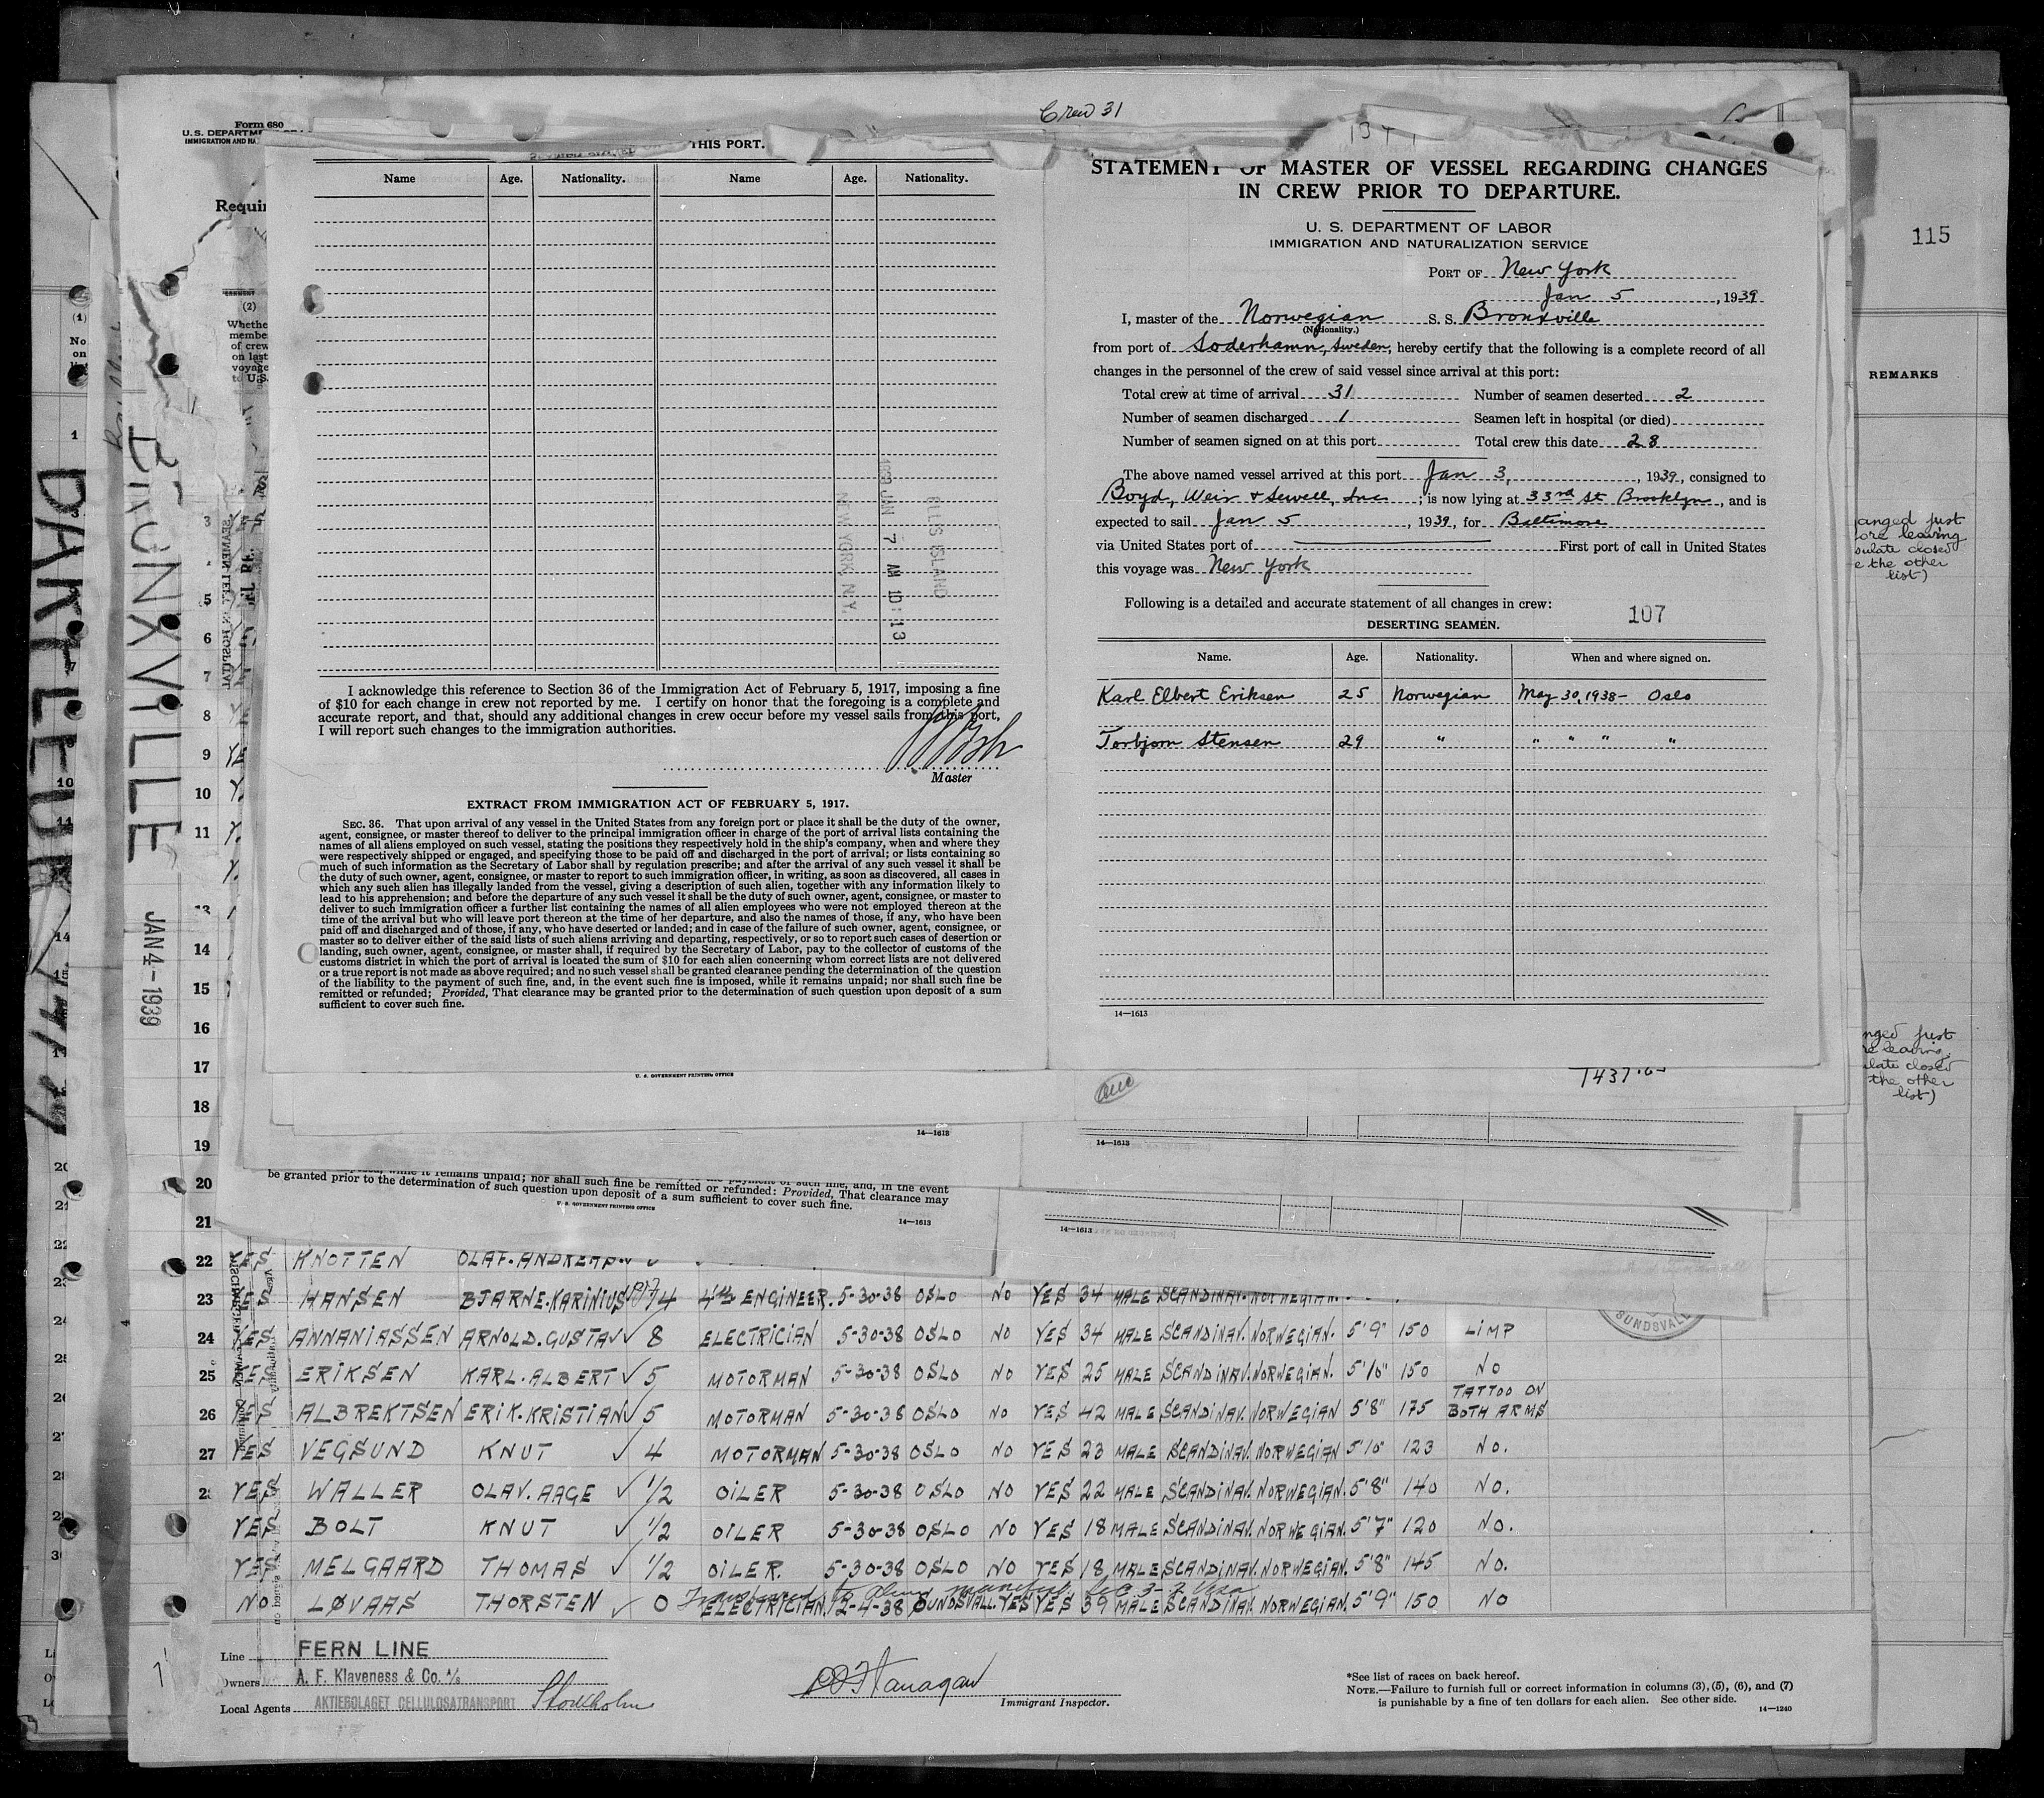 Crew 31
Form 680
U. S. DEPARTM
IMMIGRATION AND
115
Requir
THIS PORT.
Name Age. Nationality. Name Age. Nationality.
ELLIS ISLAND
1939 JAN 7 AM 10:13
NEW YORK, N.Y.
I acknowledge this reference to Section 36 of the Immigration Act of February 5, 1917, imposing a fine
of $10 for each change in crew not reported by me. I certify on honor that the foregoing is a complete and
accurate report, and that, should any additional changes in crew occur before my vessel sails from this port,
I will report such changes to the immigration authorities.
Master
EXTRACT FROM IMMIGRATION ACT OF FEBRUARY 5, 1917.
SEC. 36. That upon arrival of any vessel in the United States from any foreign port or place it shall be the duty of the owner,
agent, consignee, or master thereof to deliver to the principal immigration officer in charge of the port of arrival lists containing the
names of all aliens employed on such vessel, stating the positions they respectively hold in the ship's company, when and where they
were respectively shipped or engaged, and specifying those to be paid off and discharged in the port of arrival; or lists containing so
much of such information as the Secretary of Labor shall by regulation prescribe; and after the arrival of any such vessel it shall be
the duty of such owner, agent, consignee, or master to report to such immigration officer, in writing, as soon as discovered, all cases in
which any such alien has illegally landed from the vessel, giving a description of such alien, together with any information likely to
lead to his apprehension; and before the departure of any such vessel it shall be the duty of such owner, agent, consignee, or master to
deliver to such immigration officer a further list containing the names of all alien employees who were not employed thereon at the
time of the arrival but who will leave port thereon at the time of her departure, and also the names of those, if any, who have been
paid off and discharged and of those, if any, who have deserted or landed; and in case of the failure of such owner, agent, consignee, or
master so to deliver either of the said lists of such aliens arriving and departing, respectively, or so to report such cases of desertion or
landing, such owner, agent, consignee, or master shall, if required by the Secretary of Labor, pay to the collector of customs of the
customs district in which the port of arrival is located the sum of $10 for each alien concerning whom correct lists are not delivered
or a true report is not made as above required; and no such vessel shall be granted clearance pending the determination of the question
of the liability to the payment of such fine, and, in the event such fine is imposed, while it remains unpaid; nor shall such fine be
remitted or refunded; Provided, That clearance may be granted prior to the determination of such question upon deposit of a sum
sufficient to cover such fine.
U. S. GOVERNMENT PRINTING OFFICE
STATEMENT OF MASTER OF VESSEL REGARDING CHANGES
IN CREW PRIOR TO DEPARTURE.
U. S. DEPARTMENT OF LABOR
IMMIGRATION AND NATURALIZATION SERVICE
PORT OF New York
Jan 5, 1939
I, master of the Norwegian S. S. Bronxville
(Nationality.)
from port of Soderhamn, Sweden, hereby certify that the following is a complete record of all
changes in the personnel of the crew of said vessel since arrival at this port:
Total crew at time of arrival 31 Number of seamen deserted 2
Number of seamen discharged 1 Seamen left in hospital (or died)
Number of seamen signed on at this port Total crew this date 28
The above named vessel arrived at this port Jan 3, 1939, consigned to
Boyd, Weir & Sewell, Inc ; is now lying at 33rd St Brooklyn, and is
expected to sail Jan 5, 1939, for Baltimore
via United States port of First port of call in United States
this voyage was New York
Following is a detailed and accurate statement of all changes in crew:
107
DESERTING SEAMEN.
Name. Age. Nationality. When and where signed on.
Karl Elbert Eriksen 25 Norwegian May 30, 1938 - Oslo
Torbjorn Stensen 29 " " " " "
14—1613
REMARKS
anged just
ore leaving
sulate closed
e the other
list)
nged just
re leaving
ulate closed
the other
list)
DARELEUR
BRONXVILLE
JAN 4 - 1939
(2)
Whethe
membe
of crew
on last
voyage
to U.S.
SEAMEN LEFT IN HOSPITAL
14—1613
14—1613
be granted prior to the determination of such question upon deposit of a sum sufficient to cover such fine.
while it remains unpaid; nor shall such fine be remitted or refunded: Provided, That clearance may
U. S. GOVERNMENT PRINTING OFFICE
14—1613
14—1613
22 YES KNOTTEN OLAF.ANDREAS
23 YES HANSEN BJARNE.KARINIUS 14 4th ENGINEER. 5-30-38 OSLO NO YES 34 MALE SCANDINAV. NORWEGIAN.
24 YES ANNANIASSEN ARNOLD.GUSTAV ✓ 8 ELECTRICIAN 5-30-38 OSLO NO YES 34 MALE SCANDINAV. NORWEGIAN. 5'9" 150 LIMP
25 YES ERIKSEN KARL.ALBERT ✓ 5 MOTORMAN 5-30-38 OSLO NO YES 25 MALE SCANDINAV. NORWEGIAN. 5'10" 150 NO
26 YES ALBREKTSEN ERIK.KRISTIAN ✓ 5 MOTORMAN 5-30-38 OSLO NO YES 42 MALE SCANDINAV. NORWEGIAN 5'8" 175 TATTOO ON BOTH ARMS
27 YES VEGSUND KNUT ✓ 4 MOTORMAN 5-30-38 OSLO NO YES 23 MALE SCANDINAV. NORWEGIAN 5'10" 123 NO.
28 YES WALLER OLAV.AAGE ✓ 1/2 OILER 5-30-38 OSLO NO YES 22 MALE SCANDINAV. NORWEGIAN. 5'8" 140 NO.
YES BOLT KNUT ✓ 1/2 OILER 5-30-38 OSLO NO YES 18 MALE SCANDINAV. NORWEGIAN. 5'7" 120 NO.
YES MELGAARD THOMAS ✓ 1/2 OILER. 5-30-38 OSLO NO YES 18 MALE SCANDINAV. NORWEGIAN. 5'8" 145 NO.
NO LØVAAS THORSTEN ✓ 0 ELECTRICIAN. 12-4-38 SUNDSVALL. YES YES 39 MALE SCANDINAV. NORWEGIAN. 5'9" 150 NO
SUNDSVALL
Line FERN LINE
Owners A. F. Klaveness & Co. A/S
Local Agents AKTIEBOLAGET CELLULOSATRANSPORT Stockholm
Immigrant Inspector.
*See list of races on back hereof.
NOTE.—Failure to furnish full or correct information in columns (3), (5), (6), and (7)
is punishable by a fine of ten dollars for each alien. See other side.
14—1240